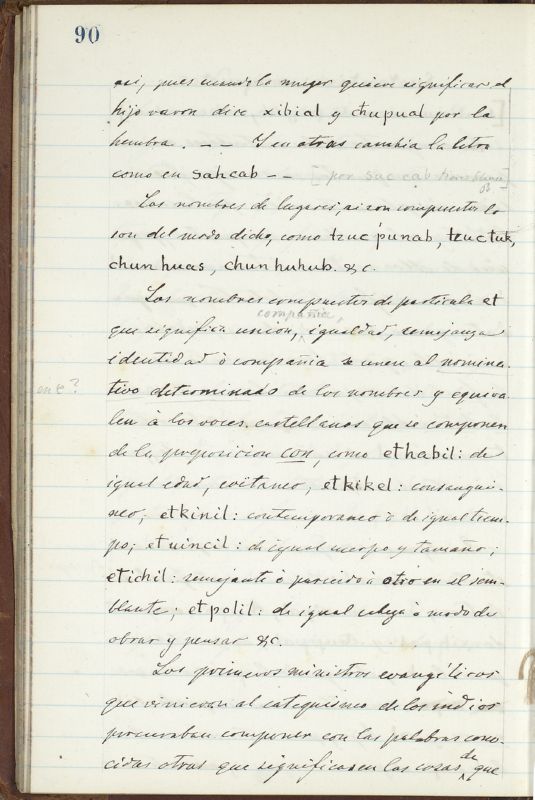 90
asi, pues cuando la muger quiere significar el
hijo varon dice xibial y chupual por la
hembra. — — Y en otras cambia la letra
como en sahcab — — [por sac cab tierra blanca]
Los nombres de lugares, si son compuestos lo
son del modo dicho, como tzuc punab, tzuctuk,
chun huas, chun huhub. &c.
Los nombres compuestos de particula et
compañia,
que significa union, igualdad, semejanza
identidad ò compañia se unen al nomina-
ent?
tivo determinado de los nombres y equiva
len à las voces castellanas que se componen
de la preposicion con, como ethabil: de
igual edad, coitaneo; etkikel: consangui-
neo; etkinil: contemporaneo ò de igual tiem-
po; etuincil: de igual cuerpo y tamaño;
etichil: semejante ò parecido à otro en el sem-
blante; etpolil: de igual cabeza ò modo de
obrar y pensar &c.
Los primeros ministros evangélicos
que vinieron al catequismo de los indios
procuraban componer con las palabras cono-
de
cidas otras que significasen las cosas que